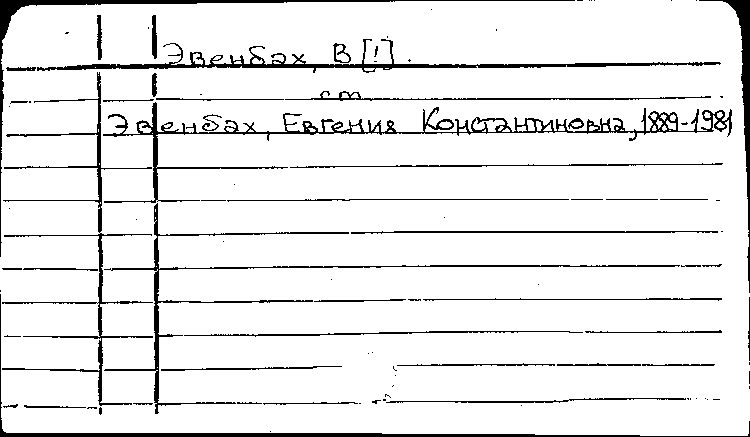 Эвенбах, В [!].
см.
Эвенбах, Евгения Константиновна, 1889-1981